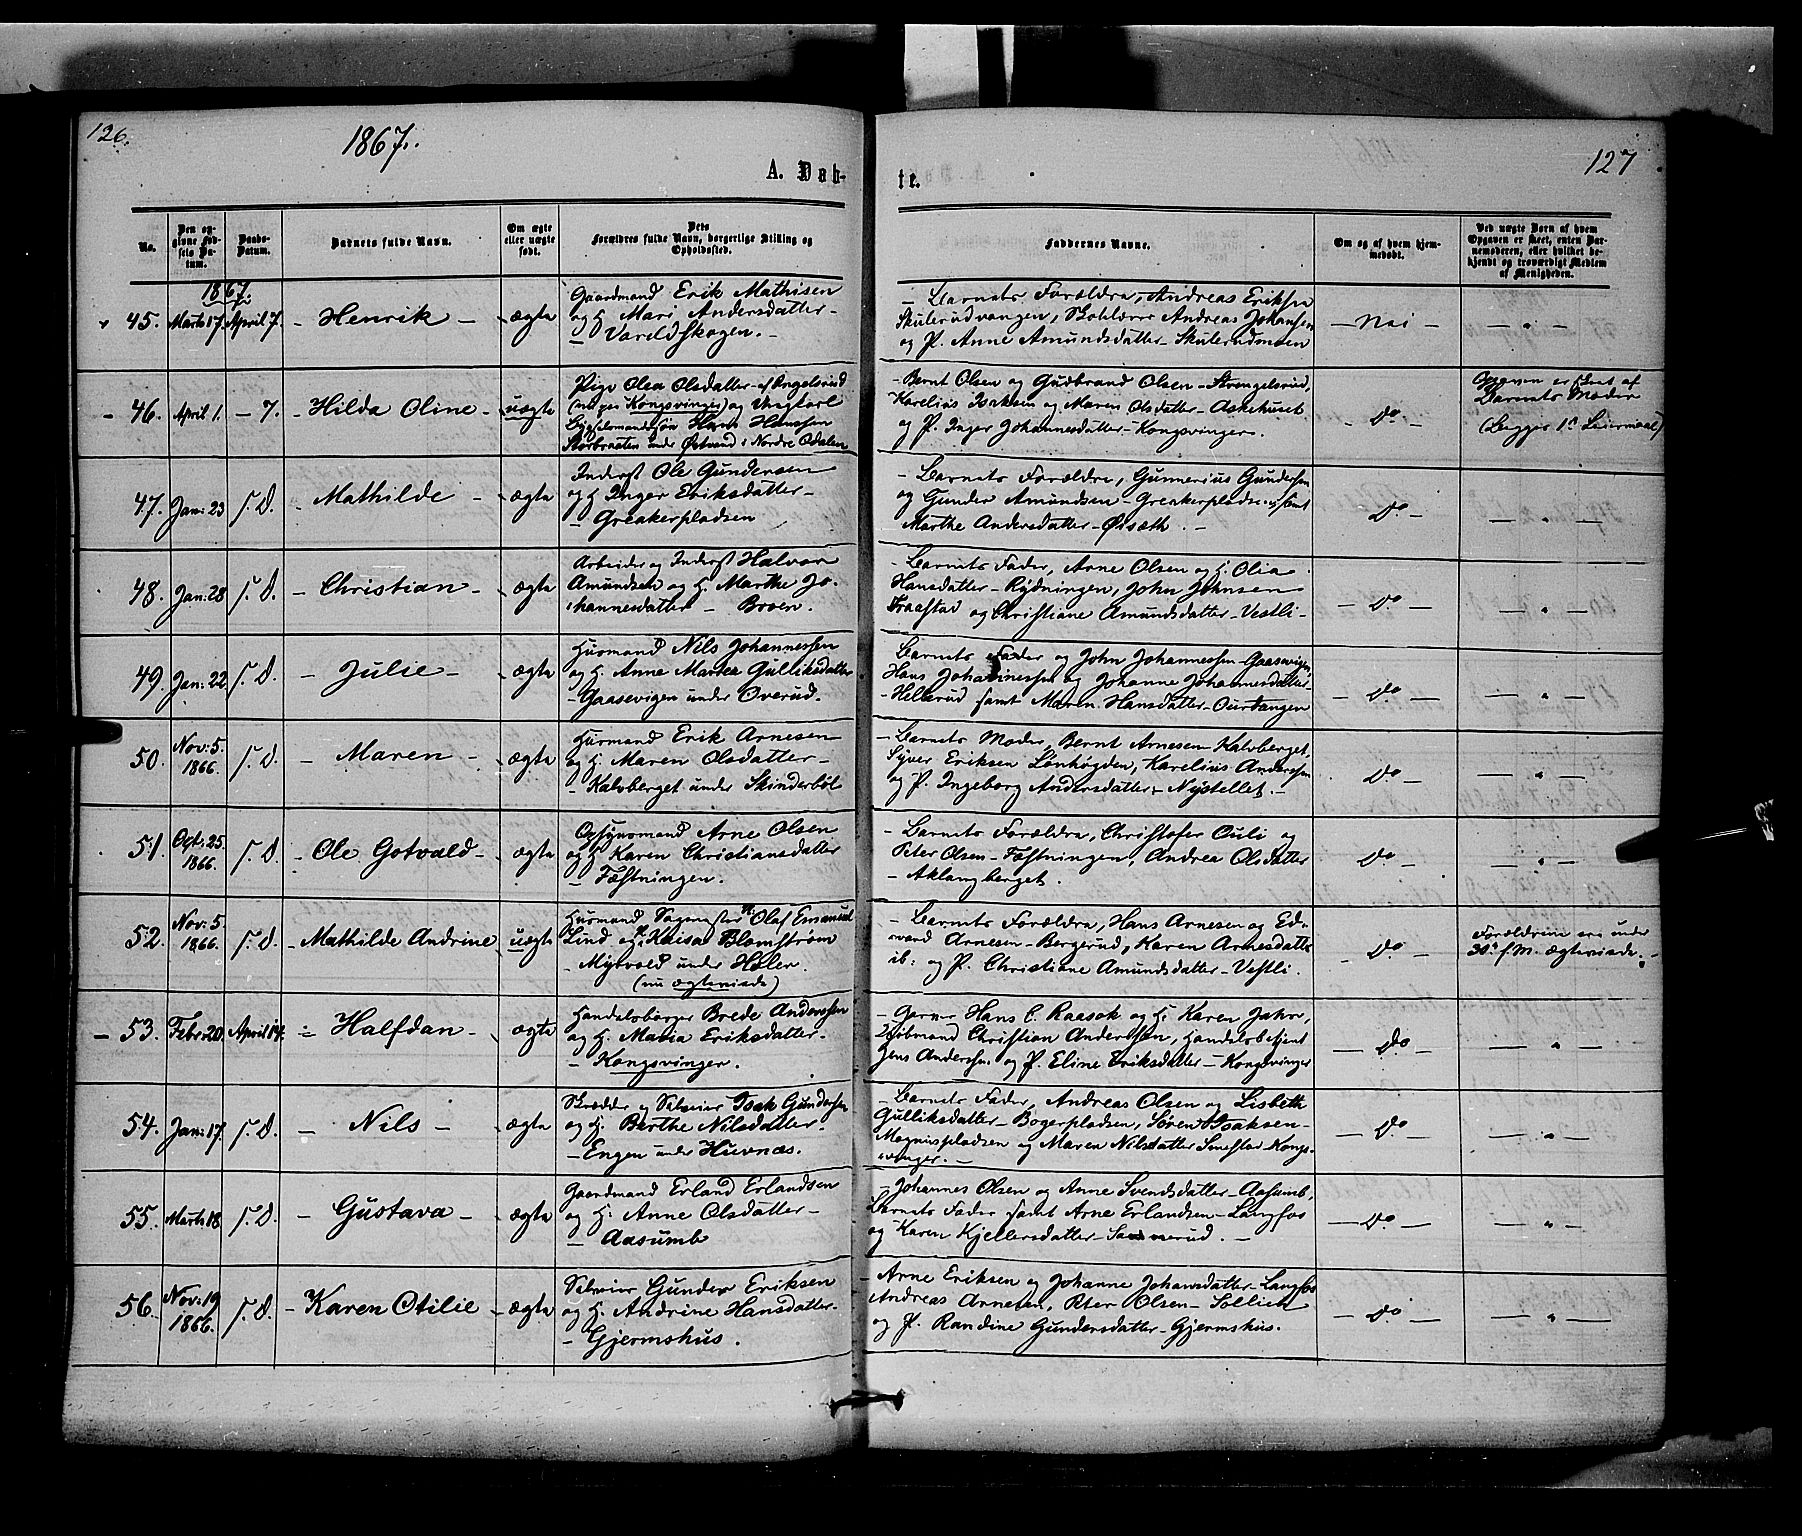 126.
1867.
A. Døb-
No.
Den op-
givne Fød-
sels Da-
tum.
Daabs-
Datum.
Barnets fulde Navn.
Om ægte
eller uægte
født.
Dets
Forældres fulde Navn, borgerlige Stilling og
Opholdssted.
1867.
45. Marts 17. April 7. - Henrik - ægte
Gaardmand Erik Mathisen
og H. Mari Andersdatter -
- Varaldskogen. -
- 46. April 1. - 7. - Hilda Oline - uægte
Pige Olea Olsdatter - af
Kongsvinger) og
Hans Hansen
Storbraaten under Østvand i Nordre Odalen
47. Jan: 23 s. D. - Mathilde - ægte
Inderst Ole Gundersen
og H. Inger Eriksdatter -
- Greakerpladsen
48. Jan: 28 s. D. - Christian - ægte
Arbeider og Inderst Halvor
Amundsen og H. Marthe Jo-
hannesdatter - Broen.
49. Jan: 22 s. D. - Julie - ægte
Husmand Nils Johannessen
og H. Anne Marthea Gulliksdatter
- Gaasevigen under Overud. -
50. Nov: 5. 1866. s. D. - Maren - ægte
Husmand Erik Arnesen
og H. Maren Olsdatter -
- Kalvberget under Skinderbøl
51. Oct: 25. 1866. s. D. - Ole Gotvald - ægte
Opsynsmand Arne Olsen
og H. Karen Christiansdatter
- Fæstningen.
52. Nov: 5. 1866. s. D. - Mathilde Andrine uægte
Husmand Sagmester Olaf Emanuel
Lind og Kaisa Blomstrøm
- Myrvold under Holer.
(nu ægteviede)
- 53. Febr: 20. April 14. - Halfdan - ægte
Handelsborger Brede Anderssen
og H. Maria Eriksdatter -
- Kongsvinger.
54. Jan: 17. s. D. - Nils - ægte
Skrædder og Selveier Isak Gundersen
og H. Berthe Nilsdatter -
- Engen under Huvnæs.
55. Marts 18. s. D. - Gustava - ægte
Gaardmand Erland Erlandsen
og H. Anne Olsdatter -
- Aasumb
56. Nov: 19 1866. s. D. - Karen Otilie - ægte
Selveier Gunder Eriksen
og H. Andrine Hansdatter -
- Gjermshus.
127
te.
Faddernes Navne.
Om og af hvem hjem-
medøbt.
Ved uægte Børn af hvem
Opgaven er skeet, enten Bar-
nemoderen, eller hvilket be-
kjendt og troværdigt Medlem
af Menigheden.
- Barnets Forældre, Andreas Eriksen
Skulerudvangen, Skolelærer Andreas Johansen
og P. Anne Amundsdatter - Skulerudmoen
- Nei -
- " -
- Bernt Olsen og Gudbrand Olsen - Strengelsrud,
Karelius Isaksen og Maren Olsdatter - Askehuset
og P. Inger Johannesdatter - Kongsvinger.
- Do -
Opgaven er skeet af
Barnets Moder
(Begges 1ste Leiermaal)
- Barnets Forældre, Gunnerius Gundersen
og Gunder Amundsen - Greakerpladsen, samt
Marthe Andersdatter - Ørsæth. -
Do -
- " -
- Barnets Fader, Arne Olsen og H. Olia
Hansdatter - Rydningen, John Johnsen
Fraastad og Christiane Amundsdatter - Vestli -
- Do -
- " -
- Barnets Fader og John Johannessen - Gaasevigen,
Hans Johannessen og Johanne Johannesdatter -
- Hellerud samt Maren Hansdatter - Ourtangen
- Do -
- " -
- Barnets Moder, Bernt Arnesen - Kalvberget,
Syver Eriksen Lønhøgden, Karelius Anderssen
og P. Ingeborg Andersdatter - Nystellet. -
Do -
- " -
- Barnets Forældre, Christofer Ouli og
Peter Olsen - Fæstningen, Andrea Olsdatter
- Aklangberget.
Do -
- " -
- Barnets Forældre, Hans Arnesen og Ed-
vard Arnesen - Bergerud, Karen Arnesdatter
ib: og P. Christiane Amundsdatter - Vestli.
- Do -
Forældrene ere under
30te f. M. ægteviede. -
- Garver Hans C. Raasok og H. Karen Jahr,
Kjøbmand Christian Anderssen, Handelsbetjent
Jens Anderssen og P. Eline Eriksdatter - Kongsvinger
- Do -
- " -
- Barnets Fader, Andreas Olsen og Lisbeth
Gulliksdatter - Bogerpladsen, Søren Isaksen -
- Magnuspladsen og Maren Nilsdatter Smestad - Kongs-
vinger. -
- Do -
- " -
- Johannes Olsen og Anne Svendsdatter - Aasumb,
Barnets Fader samt Arne Erlandsen - Langfos
og Karen Kjellersdatter - Sannerud. -
- Do -
- " -
- Arne Eriksen og Johanne Johansdatter - Langfos
Andreas Arnesen, Peter Olsen - Sollien
og P. Randine Gundersdatter - Gjermshus.
- Do -
- " -